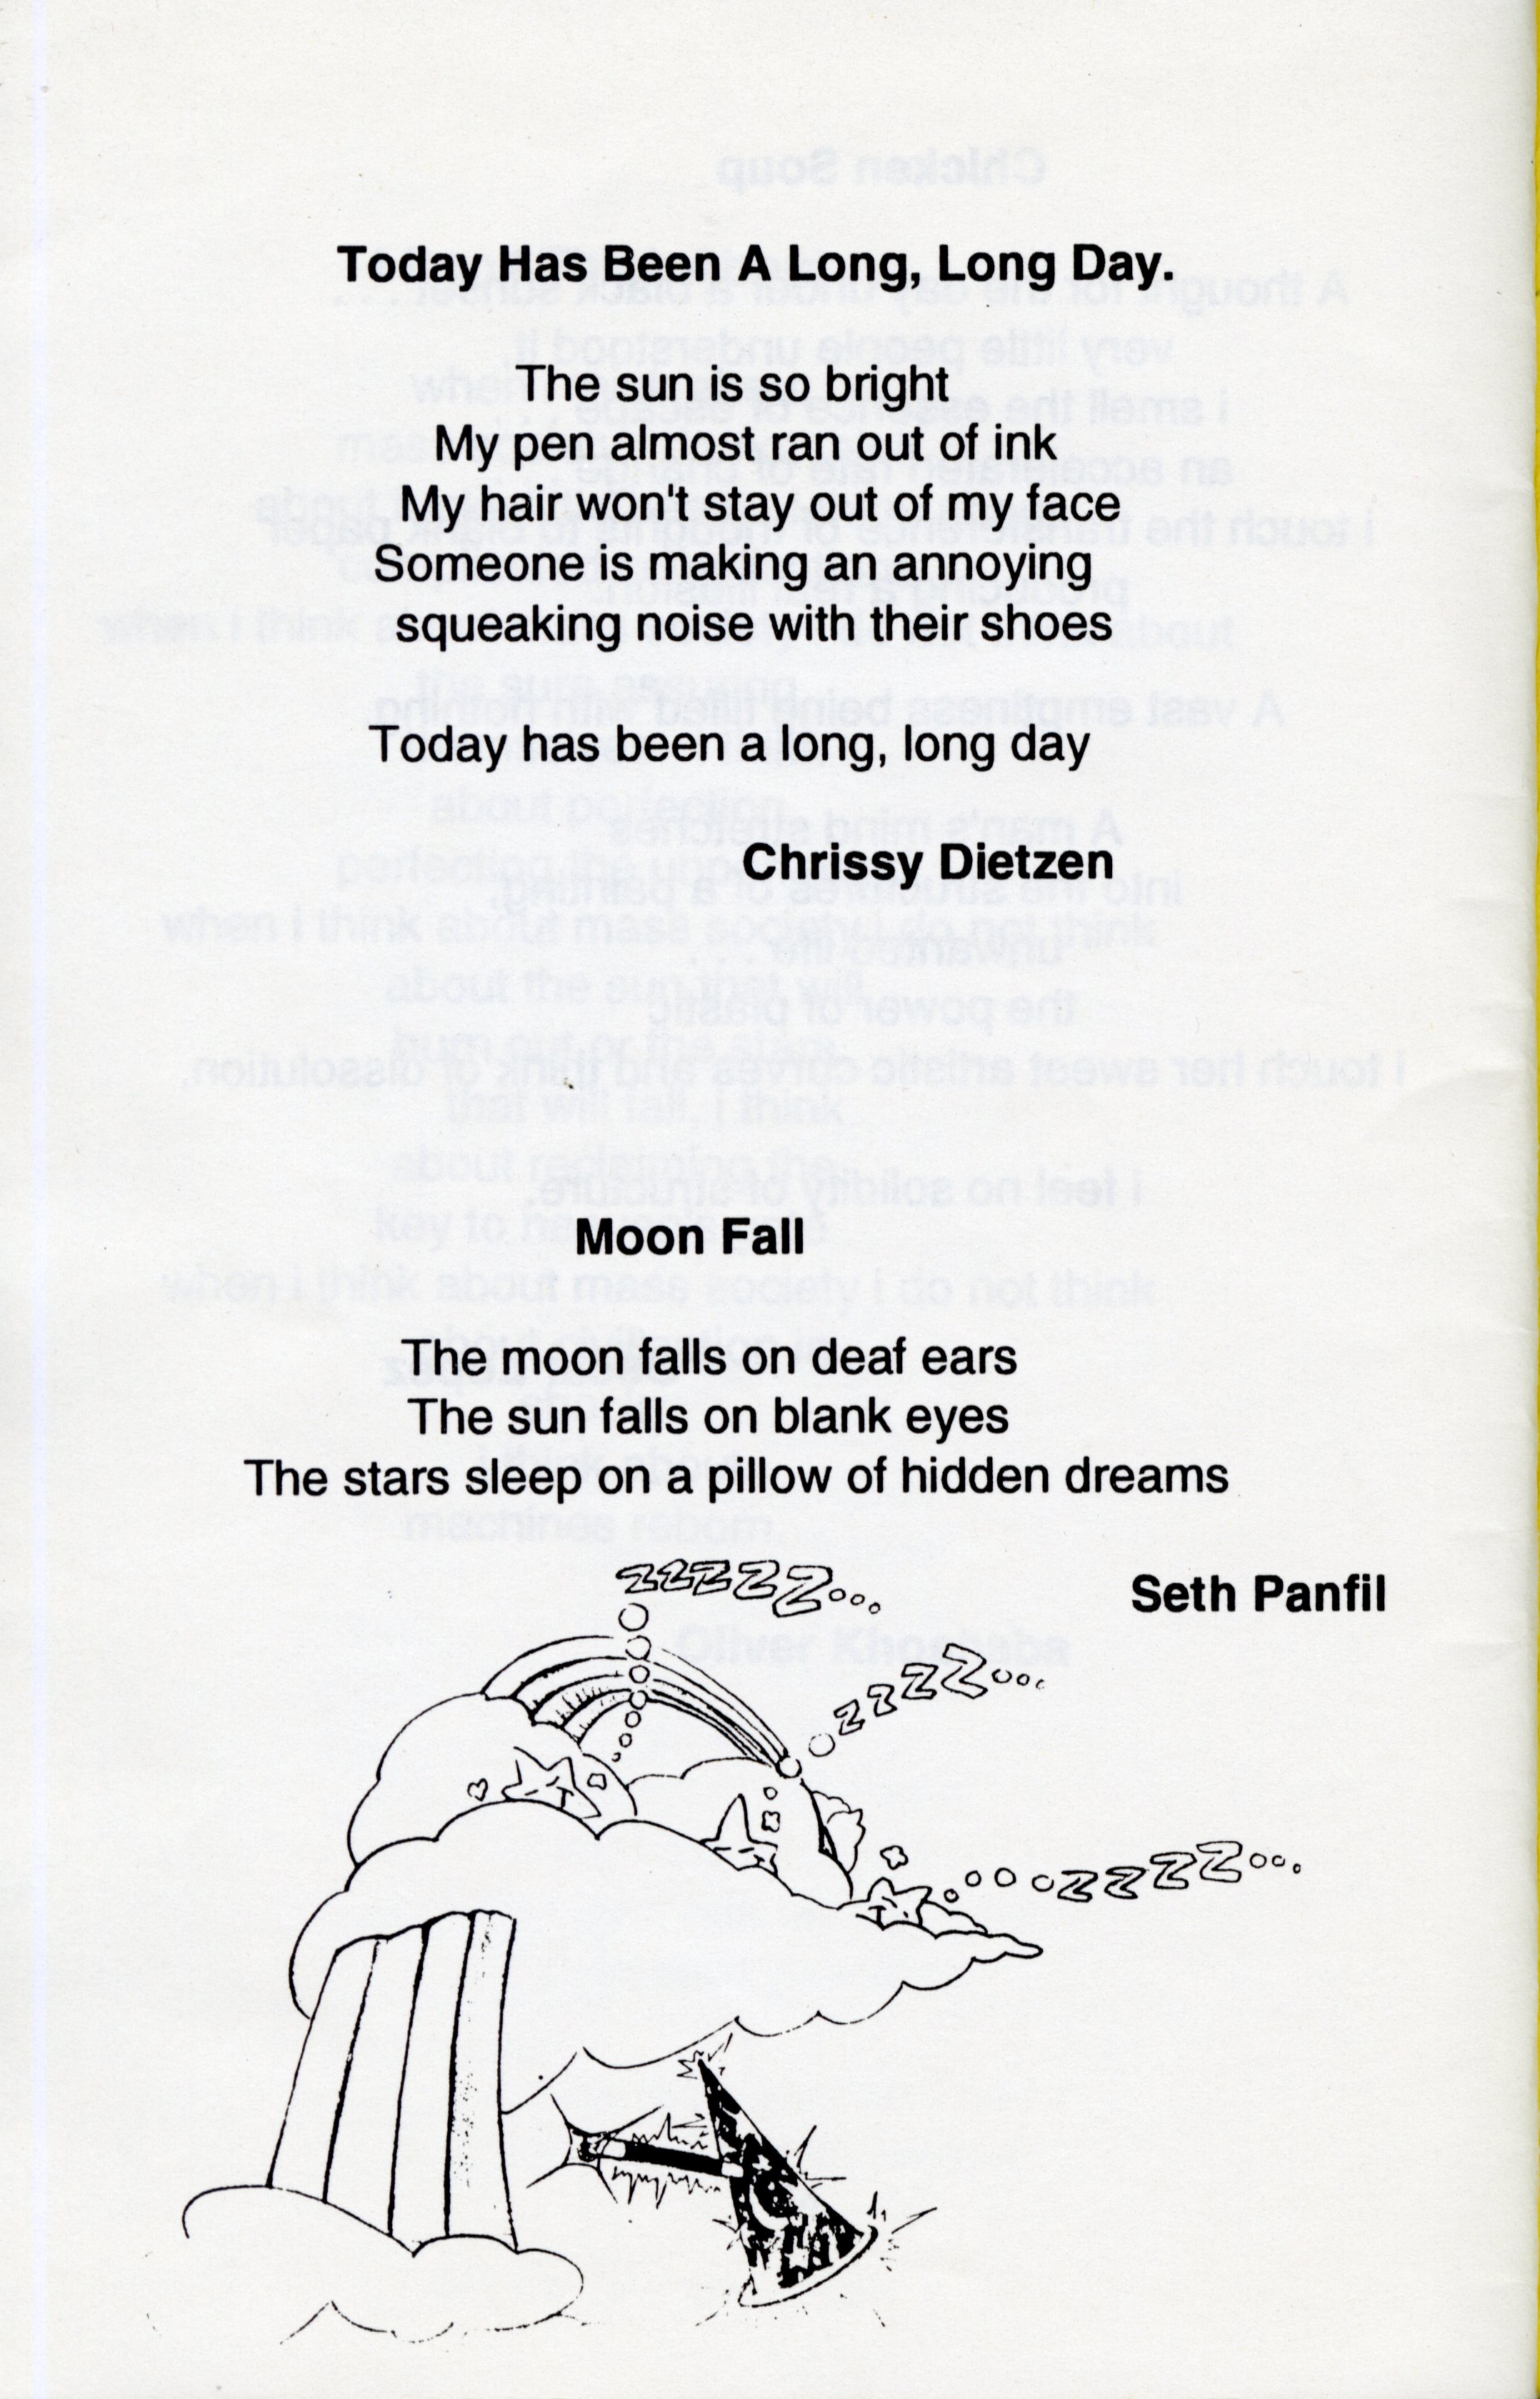 Today Has Been A Long, Long Day.
The sun is so bright
My pen almost ran out of ink
My hair won't stay out of my face
Someone is making an annoying
squeaking noise with their shoes
Today has been a long, long day
Chrissy Dietzen
Moon Fall
The moon falls on deaf ears
The sun falls on blank eyes
The stars sleep on a pillow of hidden dreams
Seth Panfil
zzzzz...
zzzz...
zzzz...